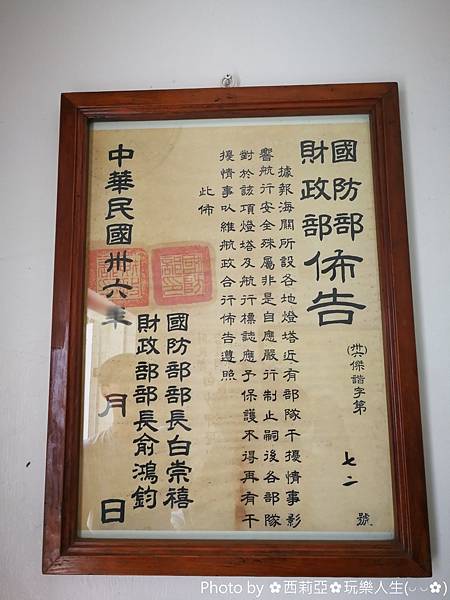 國防部
財政部
佈告
(卅六)傑諧字第 七二 號
據報海關所設各地燈塔近有部隊干擾情事影
響航行安全殊屬非是自應嚴行制止嗣後各部隊
對於該項燈塔及航行標誌應予保護不得再有干
擾情事以維航政合行佈告遵照
此佈
國防部部長白崇禧
財政部部長俞鴻鈞
中華民國卅六年 月 日
Photo by ✿西莉亞✿玩樂人生(◡ᴗ◡✿)